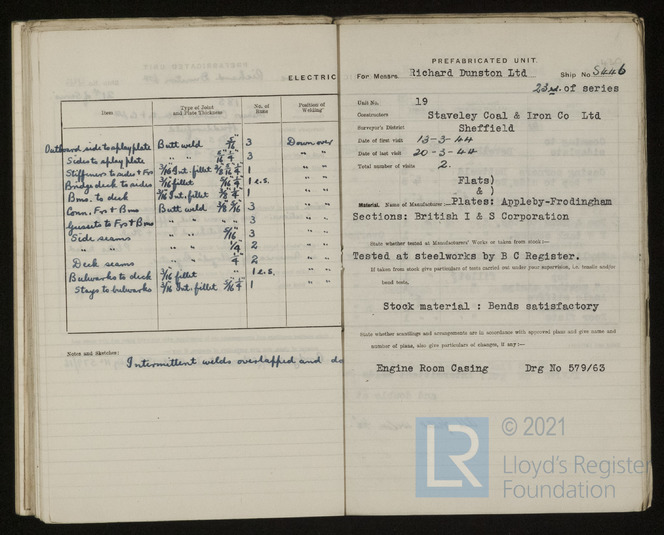 ELECTRIC
Item Type of Joint and Plate Thickness No. of Runs Position of Welding
Outboard side to aplay plate Butt weld 5/16" 3 Downover
Sides to aplay plate " " 5/16 1/4 3 " "
Stiffeners to sides + Frs 3/16 Int. fillet 1 " "
Bridge deck to sides 3/16 fillet 5/16 1/4 1 e.s. " "
Bms. to deck 3/16 Int. fillet 1 " "
Conn. Frs + Bms Butt weld 3/8 5/16 3 " "
Gussets to Frs + Bms " " 3 " "
Side seams " " 5/16 3 " "
" " " " 1/4 2 " "
Deck seams " " 1/4 2 " "
Bulwarks to deck 3/16 fillet " 1 e.s. " "
Stays to bulwarks 3/16 Int. fillet 5/16 1/4 1 " "
Notes and Sketches:
Intermittent welds overlapped and do
PREFABRICATED UNIT.
For Messrs. Richard Dunston Ltd Ship No. S446
23rd. of series
Unit No. 19
Constructors Staveley Coal & Iron Co Ltd
Surveyor's District Sheffield
Date of first visit 13-3-44
Date of last visit 20-3-44
Total number of visits 2.
Flats)
& )
Material. Name of Manufacturer :- Plates: Appleby-Frodingham
Sections: British I & S Corporation
State whether tested at Manufacturers' Works or taken from stock :—
Tested at steelworks by B C Register.
If taken from stock give particulars of tests carried out under your supervision, i.e. tensile and/or
bend tests,
Stock material : Bends satisfactory
State whether scantlings and arrangements are in accordance with approved plans and give name and
number of plans, also give particulars of changes, if any :—
Engine Room Casing Drg No 579/63
LR © 2021
Lloyd's Register
Foundation